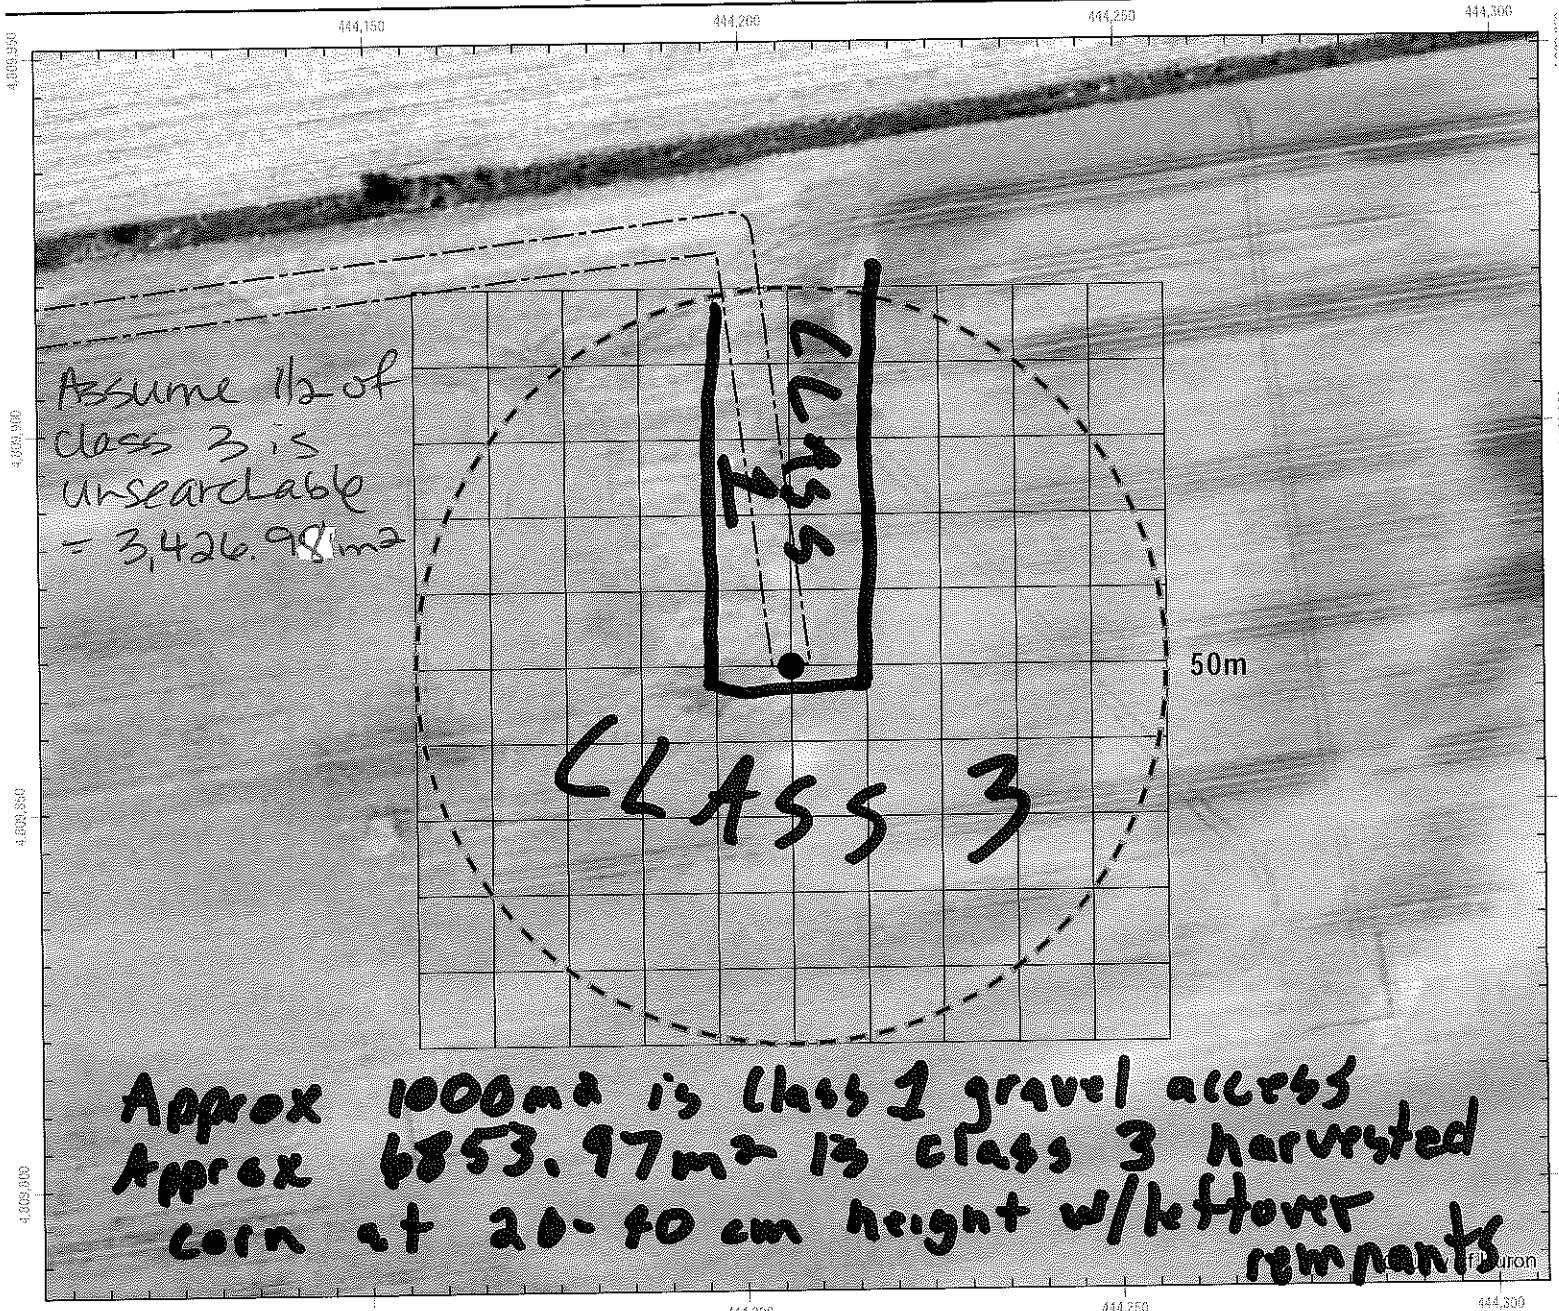 444,150
444,200
444,250
444,300
4,809,950
4,809,900
4,809,850
4,809,800
Assume 1/2 of
class 3 is
unsearchable
= 3,426.98 m2
CLASS
1
50m
CLASS 3
Approx 1000m2 is Class 1 gravel access
Approx 6853.97m2 is class 3 harvested
corn at 20-40 cm height w/leftover
remnants
uron
444,200
444,250
444,300